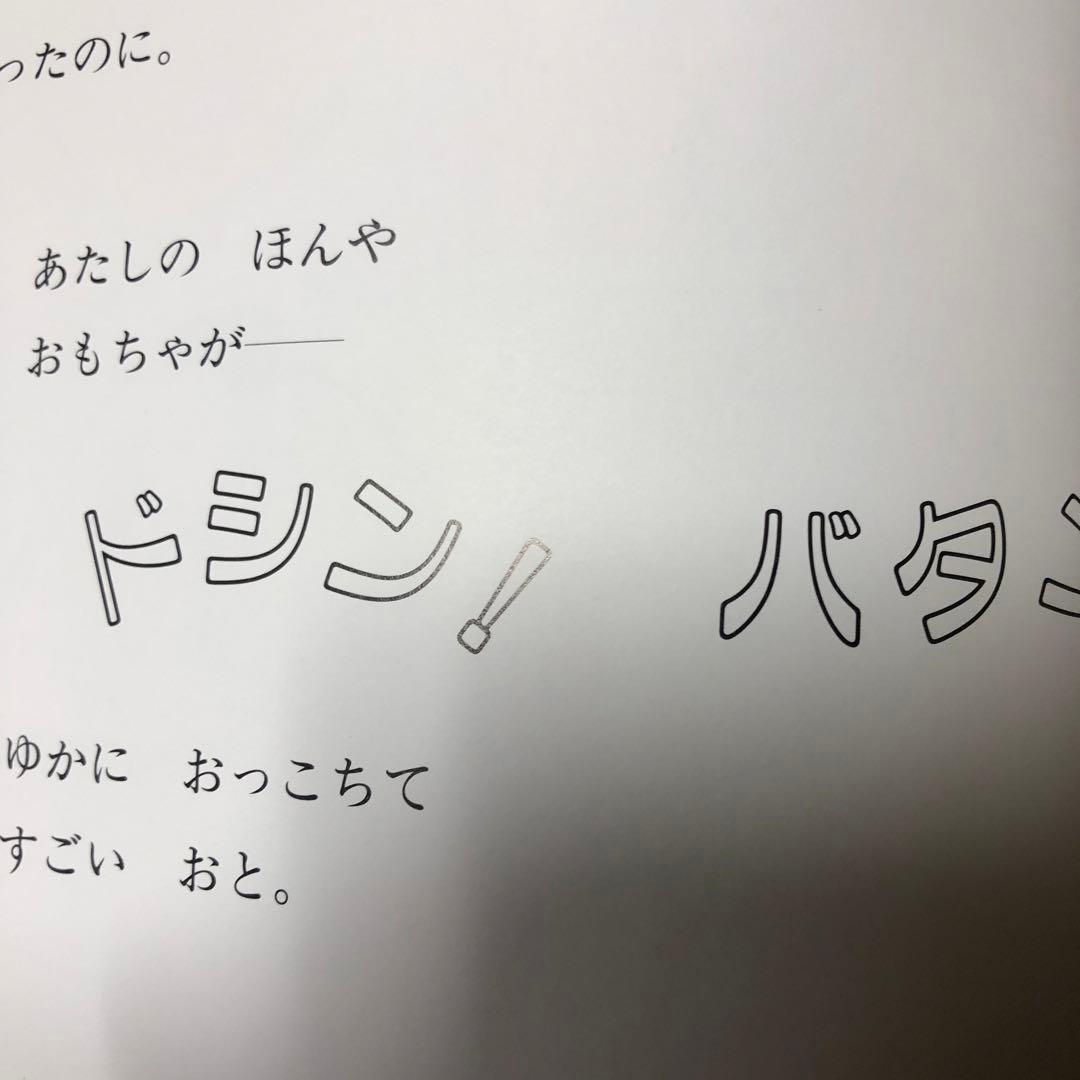 ったのに。
あたしの　ほんや
おもちゃが――
ドシン！　バタン
ゆかに　おっこちて
すごい　おと。